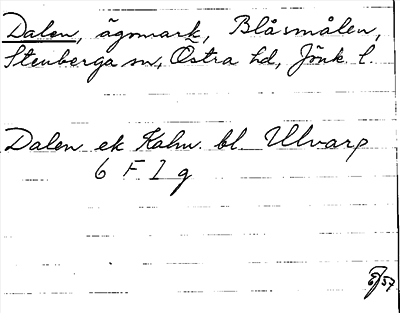 Dalen, ägomark, Blåsmålen,
Stenberga sn, Östra hd, Jönk. l.
Dalen ek Kalm. bl. Ulvarp
6 F 1 g
57